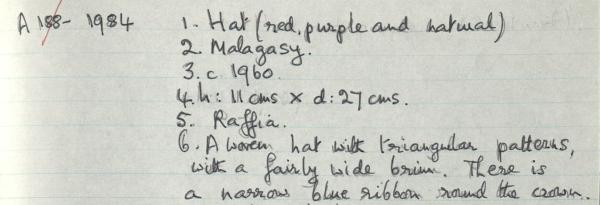 A 188- 1984 1. Hat (red, purple and natural)
2. Malagasy.
3. c. 1960.
4. h: 11 cms x d: 27 cms.
5. Raffia.
6. A woven hat with triangular patterns,
with a fairly wide brim. There is
a narrow blue ribbon round the crown.